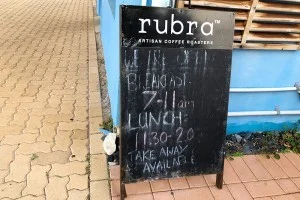 rubra™
ARTISAN COFFEE ROASTERS
WE'RE OPEN
BREAKFAST:
7-11am
LUNCH:
11:30-2.0
TAKE AWAY
AVAILABLE